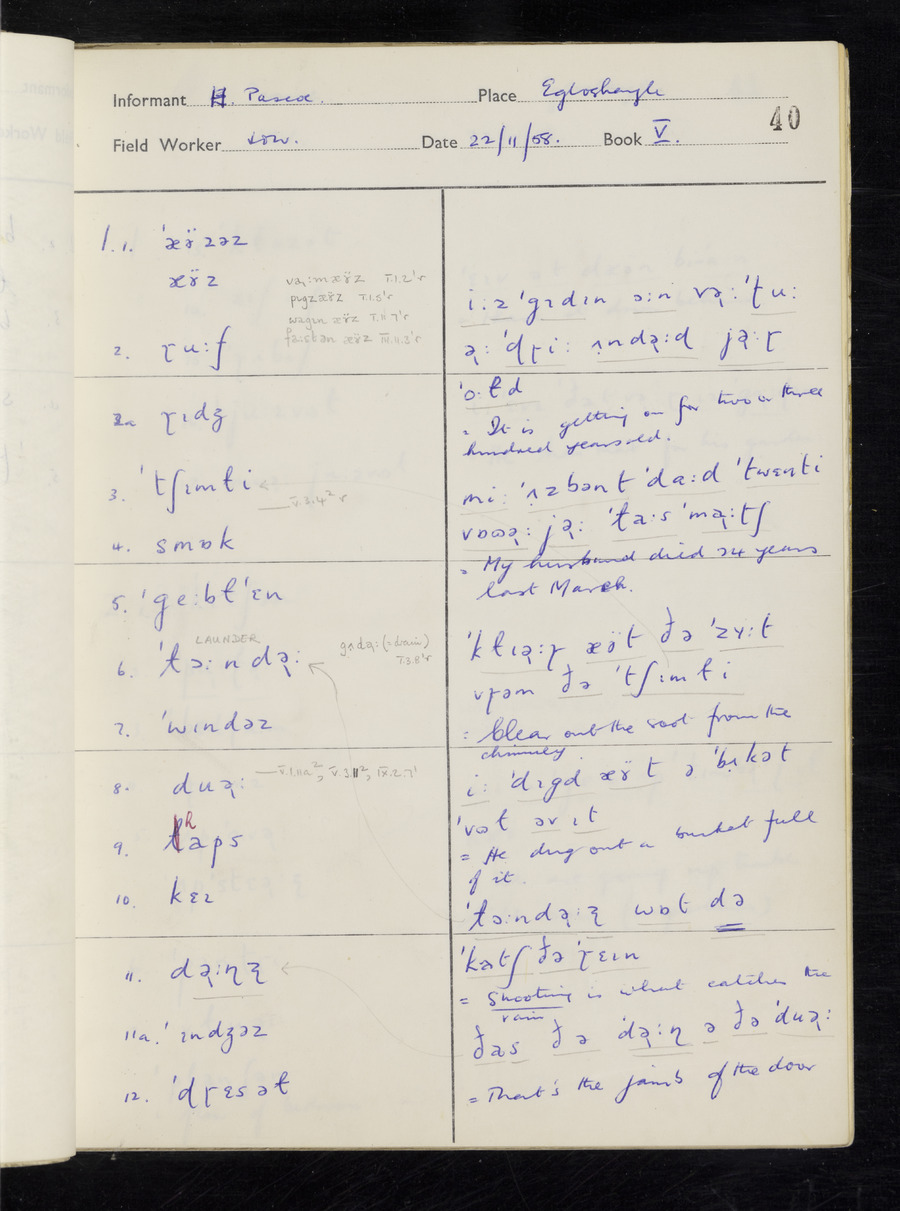 Informant H. Pascoe. Place Egloshayle
40
Field Worker Date 22/11/58. Book V.
1.1. ˈæʏ̈zəz
æʏ̈z
va̢ːmæʏ̈z I.1.2'r
pɪgzæʏ̈z I.1.5'r
wagɪn æʏ̈z I.11.7'r
2. ɽuːf
2a ɽɪdʒ
3. ˈtʃɪmɫi
V.3.4² r
4. smɒk
5. ˈgeːbɫˈɛn
LAUNDER
6. ˈɫɔːndə̢ː
(= drain)
I.3.8'r
7. ˈwɪndəz
8. duə̢ː
V.1.11a², V.3.11², IX.2.7'
9. ɫʰaps
10. kɛɪ
11. də̢ːɳʐ
11a. ˈɪndʒəz
12. ˈdɽɛsəɫ
iːz ˈgɪdɪn ɔːn və̢ː ˈʈuː
ə̢ː ˈdɽiː ʌndə̢ːd jə̢ːɽ
ˈoːɫd
= It is getting on for two or three
hundred years old.
miː ˈʌzbənt ˈdaːd ˈtwɛnti
vɒʊə̢ː jə̢ː ˈɫaːs ˈma̢ːtʃ
= My husband died 24 years
last March.
ˈkɫɪə̢ːɽ æʏ̈t ðə ˈzʏːt
vɽəm ðə ˈtʃɪmɫi
= Clear out the soot from the
chimney
iː ˈdɪgd æʏ̈t ə ˈbʌkət
ˈvʊɫ əv ɪt
= He dug out a bucket full
of it.
ˈɫɔːndə̢ːʐ wɒt də
ˈkətʃ ðə ˈɽɛɪn
= Shooting is what catches the
rain
ðas ðə ˈdə̢ːɳ ə ðə ˈduə̢ː
= That's the jamb of the door